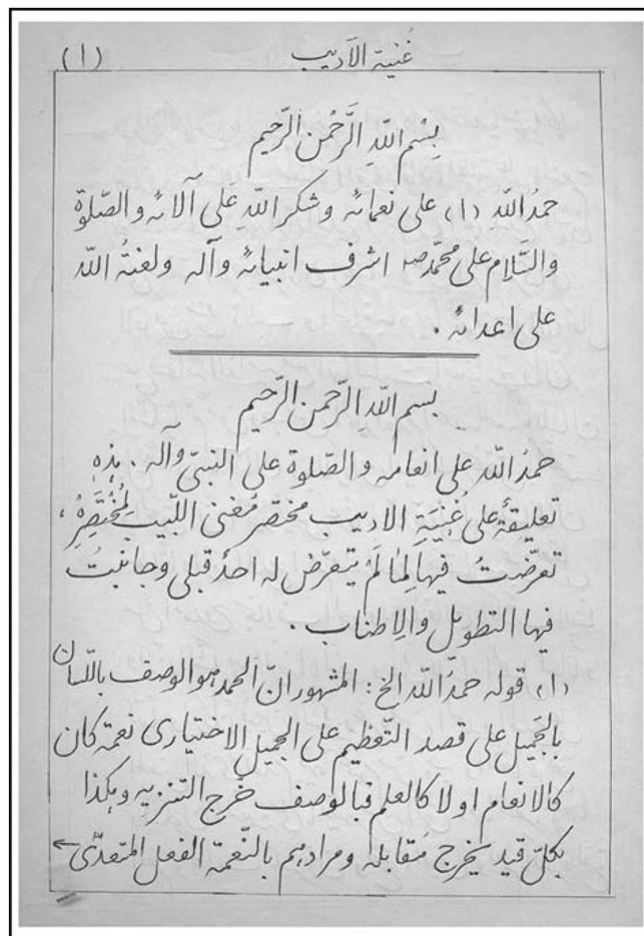 غُنية الأديب (١)
بِسْمِ اللّهِ الرَّحْمنِ الرَّحيم
حمدُ اللّه (١) على نعمائه وشكر اللّه عَلى آلائه والصّلوة
والسَّلام على محمّدص اشرف انبيائه وآله ولعنةُ اللّه
على اعدائه.
بسم اللّه الرّحمن الرّحيم
حمدُ اللّه على انعامه والصّلوة على النبىّ وآله. هذه
تعليقةٌ على غُنيَةِ الاديب مختصر مُغنى اللّبيب لمُخْتَصِرِهِ،
تعرّضتُ فيها لِمٰا لَمْ يتعرّض له احدٌ قبلى وجانبتُ
فيها التطويل والإطناب.
(١) قوله حمدُ اللّه الخ: المشهور انّ الحمد هو الوصف باللّسان
بالجَميل على قصد التّعظيم على الجميل الاختيارى نعمةً كان
كالانعام او لا كالعلم فبالوصف خرج التنزيه وهكذا
بكلّ قيد يخرج مُقابله ومرادهم بالنّعمة الفعل المتعدّى ←